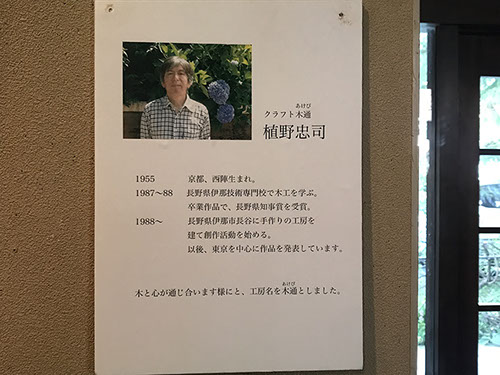 あけび
クラフト木通
植野忠司
1955 京都、西陣生まれ。
1987〜88 長野県伊那技術専門校で木工を学ぶ。
卒業作品で、長野県知事賞を受賞。
1988〜 長野県伊那市長谷に手作りの工房を
建て創作活動を始める。
以後、東京を中心に作品を発表しています。
あけび
木と心が通じ合います様にと、工房名を木通としました。